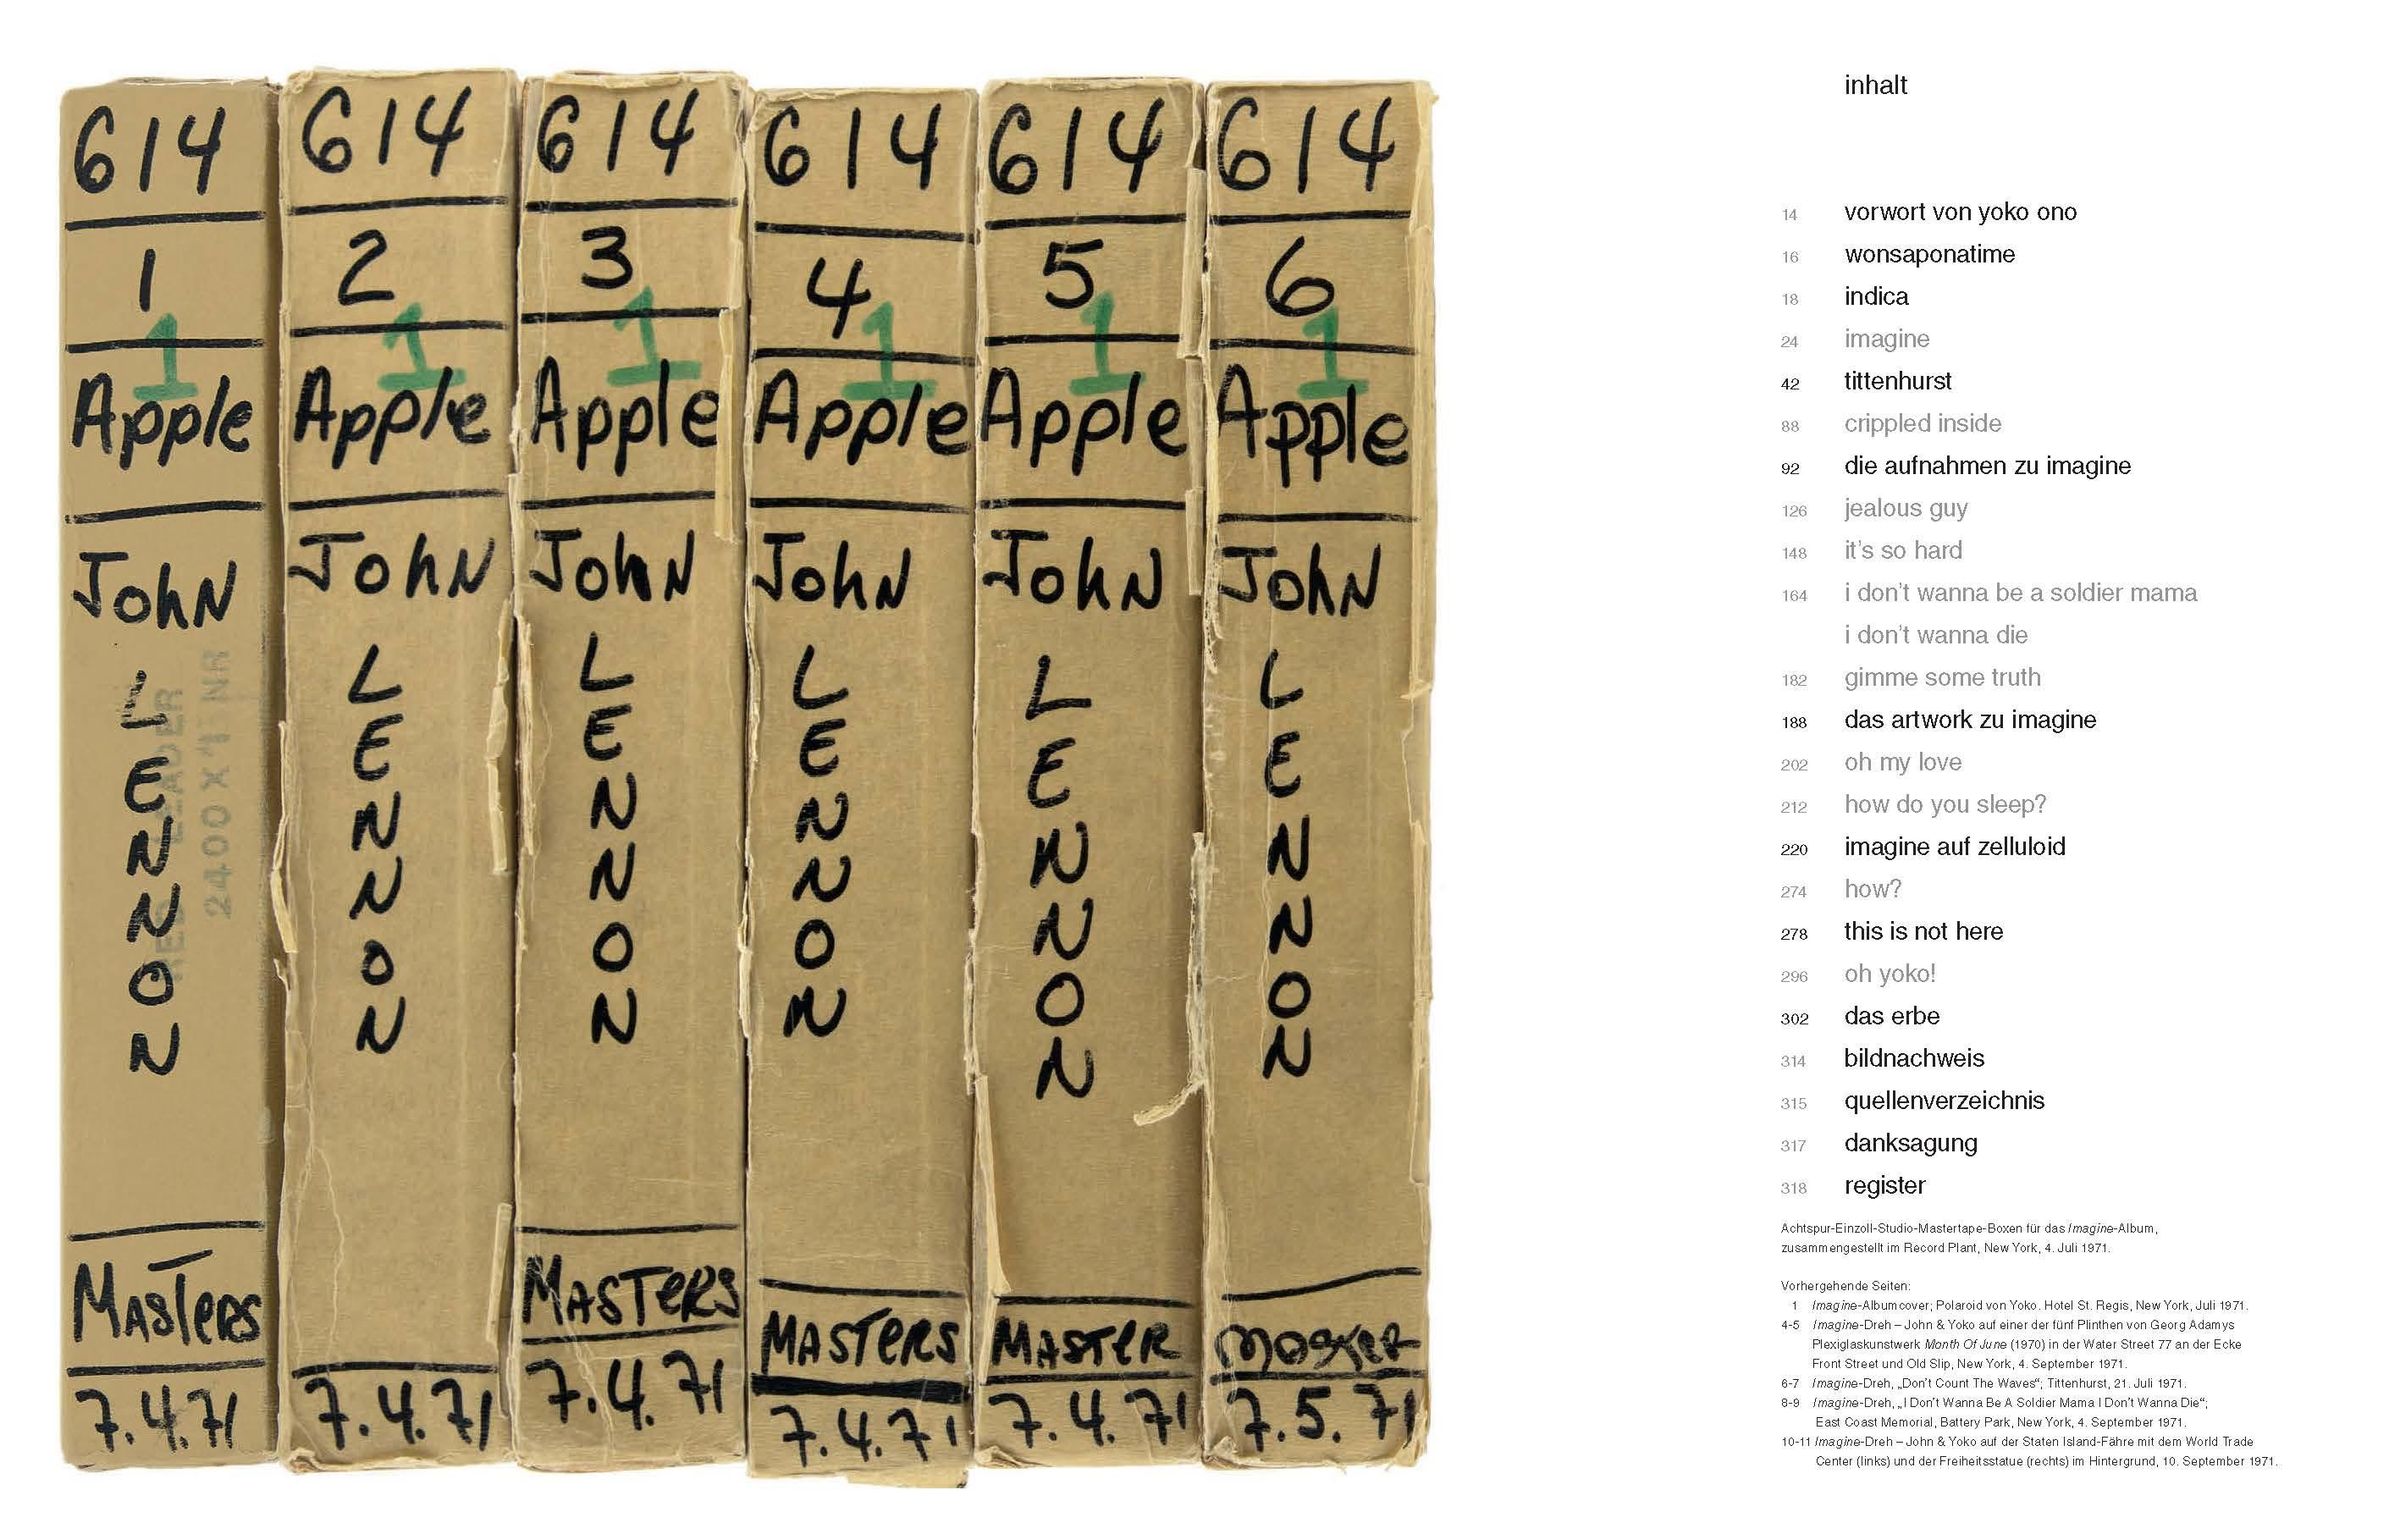 614
1
1
Apple
John
LENNON
RED LEADER
2400 X 1" NR
Masters
7.4.71
614
2
1
Apple
John
LENNON
7.4.71
614
3
1
Apple
John
LENNON
MASTERS
7.4.71
614
4
1
Apple
John
LENNON
MASTERS
7.4.71
614
5
1
Apple
John
LENNON
MASTER
7.4.71
614
6
1
Apple
John
LENNON
7.5.71
inhalt
14 vorwort von yoko ono
16 wonsaponatime
18 indica
24 imagine
42 tittenhurst
88 crippled inside
92 die aufnahmen zu imagine
126 jealous guy
148 it's so hard
164 i don't wanna be a soldier mama
i don't wanna die
182 gimme some truth
188 das artwork zu imagine
202 oh my love
212 how do you sleep?
220 imagine auf zelluloid
274 how?
278 this is not here
296 oh yoko!
302 das erbe
314 bildnachweis
315 quellenverzeichnis
317 danksagung
318 register
Achtspur-Einzoll-Studio-Mastertape-Boxen für das Imagine-Album,
zusammengestellt im Record Plant, New York, 4. Juli 1971.
Vorhergehende Seiten:
1 Imagine-Albumcover; Polaroid von Yoko. Hotel St. Regis, New York, Juli 1971.
4-5 Imagine-Dreh – John & Yoko auf einer der fünf Plinthen von Georg Adamys
Plexiglaskunstwerk Month Of June (1970) in der Water Street 77 an der Ecke
Front Street und Old Slip, New York, 4. September 1971.
6-7 Imagine-Dreh, „Don't Count The Waves“; Tittenhurst, 21. Juli 1971.
8-9 Imagine-Dreh, „I Don't Wanna Be A Soldier Mama I Don't Wanna Die“;
East Coast Memorial, Battery Park, New York, 4. September 1971.
10-11 Imagine-Dreh – John & Yoko auf der Staten Island-Fähre mit dem World Trade
Center (links) und der Freiheitsstatue (rechts) im Hintergrund, 10. September 1971.